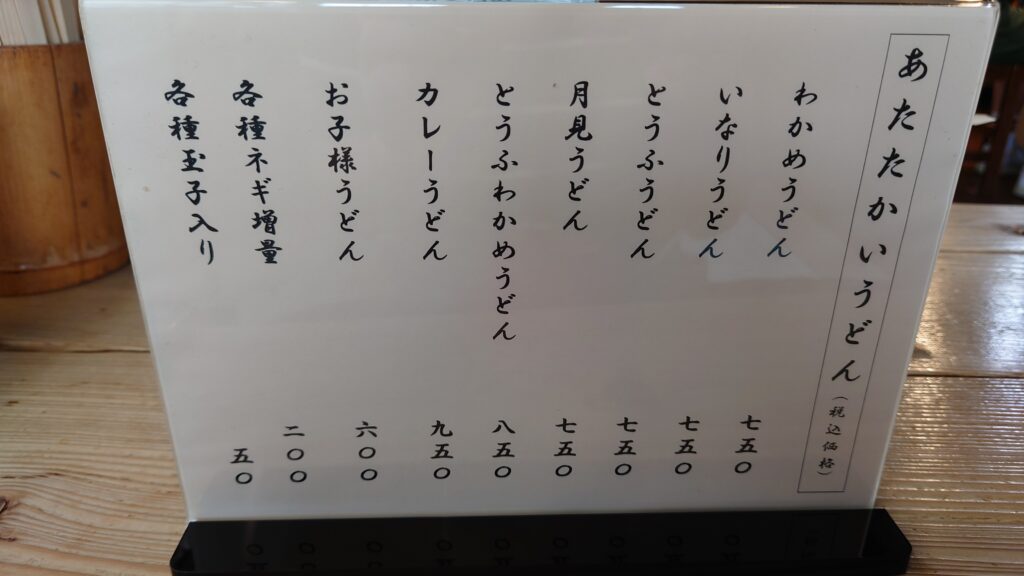 あたたかいうどん（税込価格）
わかめうどん 七五〇
いなりうどん 七五〇
とうふうどん 七五〇
月見うどん 七五〇
とうふわかめうどん 八五〇
カレーうどん 九五〇
お子様うどん 六〇〇
各種ネギ増量 二〇〇
各種玉子入り 五〇